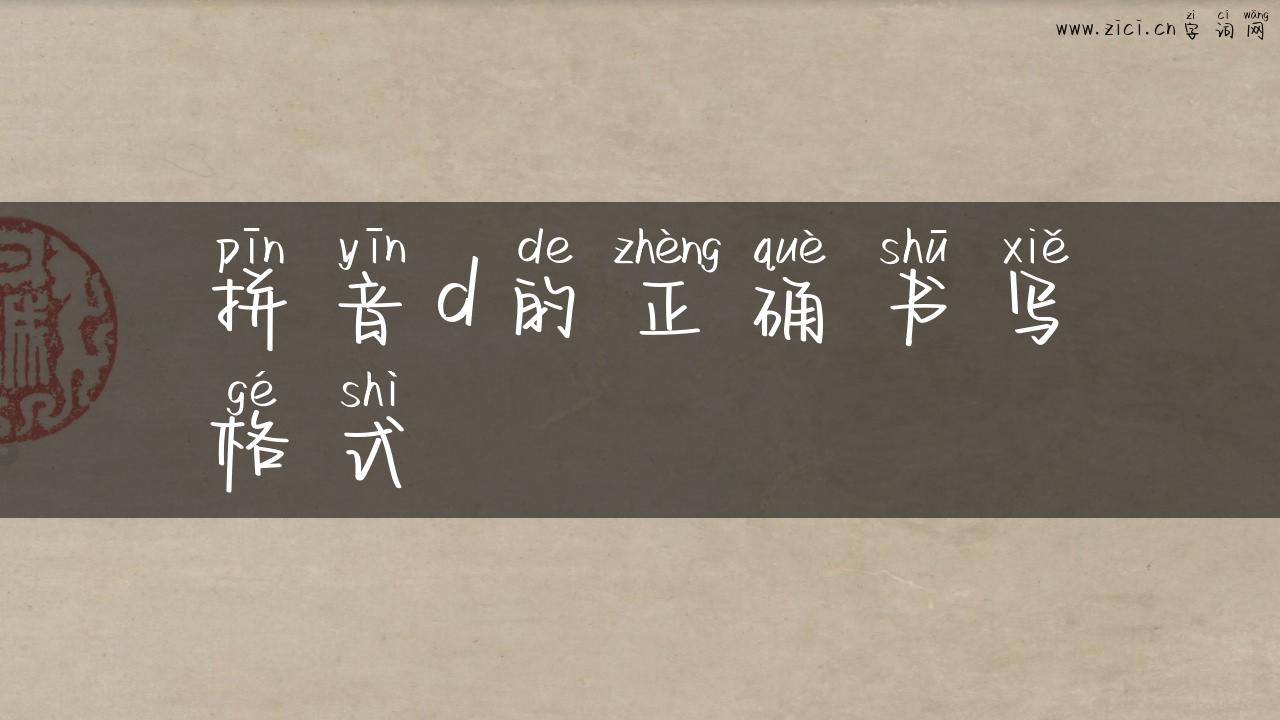 zì cí wǎng
www.zici.cn 字 词 网
pīn yīn de zhèng què shū xiě
拼 音 d 的 正 确 书 写
gé shì
格 式